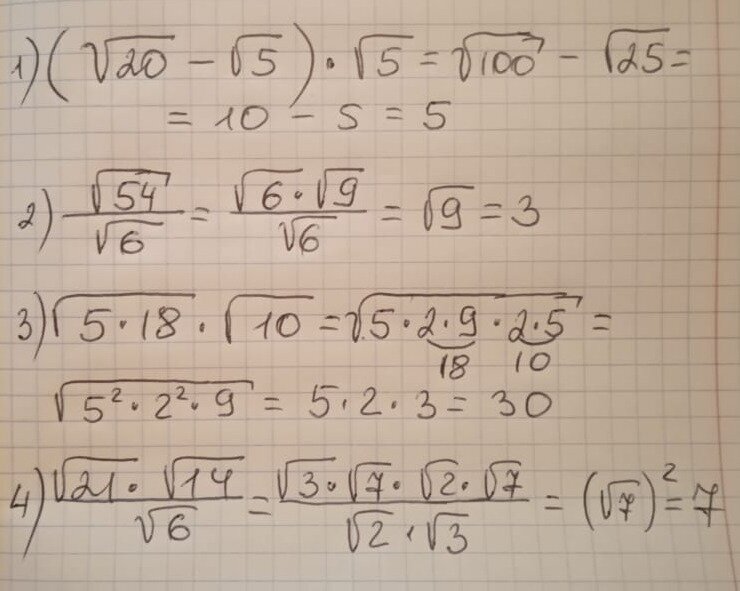 1) (√20 − √5) · √5 = √100 − √25 =
= 10 − 5 = 5
2) √54/√6 = √6·√9/√6 = √9 = 3
3) √5·18 · √10 = √5·2·9·2·5 =
18 10
√5²·2²·9 = 5·2·3 = 30
4) √21·√14/√6 = √3·√7·√2·√7/√2·√3 = (√7)² = 7